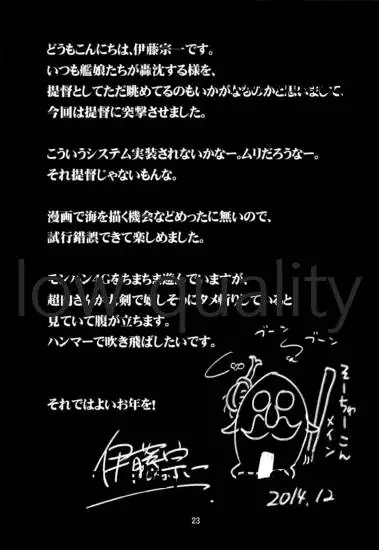 どうもこんにちは、伊藤宗一です。
いつも艦娘たちが轟沈する様を、
提督としてただ眺めてるのもいかがなものかと思いまして、
今回は提督に突撃させました。
こういうシステム実装されないかなー。ムリだろうなー。
それ提督じゃないもんな。
漫画で海を描く機会などめったに無いので、
試行錯誤できて楽しめました。
モンハン4Gをちまちま遊んでいますが、
見ていて腹が立ちます。
ハンマーで吹き飛ばしたいです。
それではよいお年を!
ブーン
ブーン
そーちゃーこん
メイン
伊藤宗一
2014.12
23
low quality